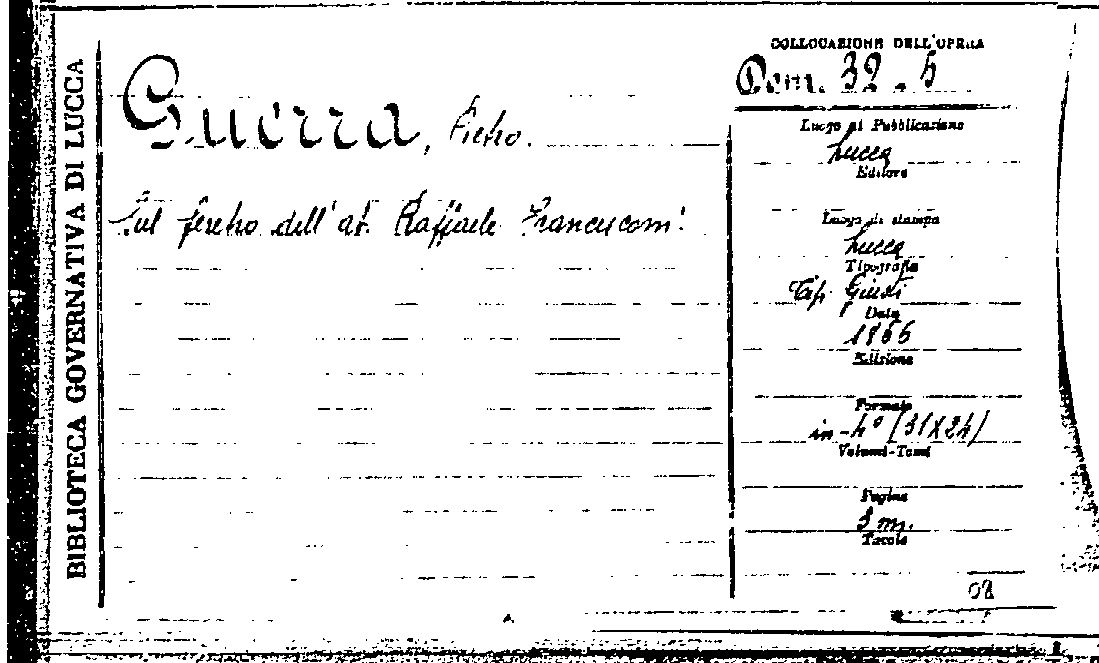 BIBLIOTECA GOVERNATIVA DI LUCCA
Guerra, Pietro.
Sul feretro dell'ab. Raffaele Francesconi
COLLOCAZIONE DELL'OPERA
32. 5
Luogo di Pubblicazione
Lucca
Editore
Luogo di stampa
Lucca
Tipografia
Tip. Giusti
Data
1866
Edizione
Formato
in-4° (31X24)
Volumi-Tomi
Pagine
Tavole